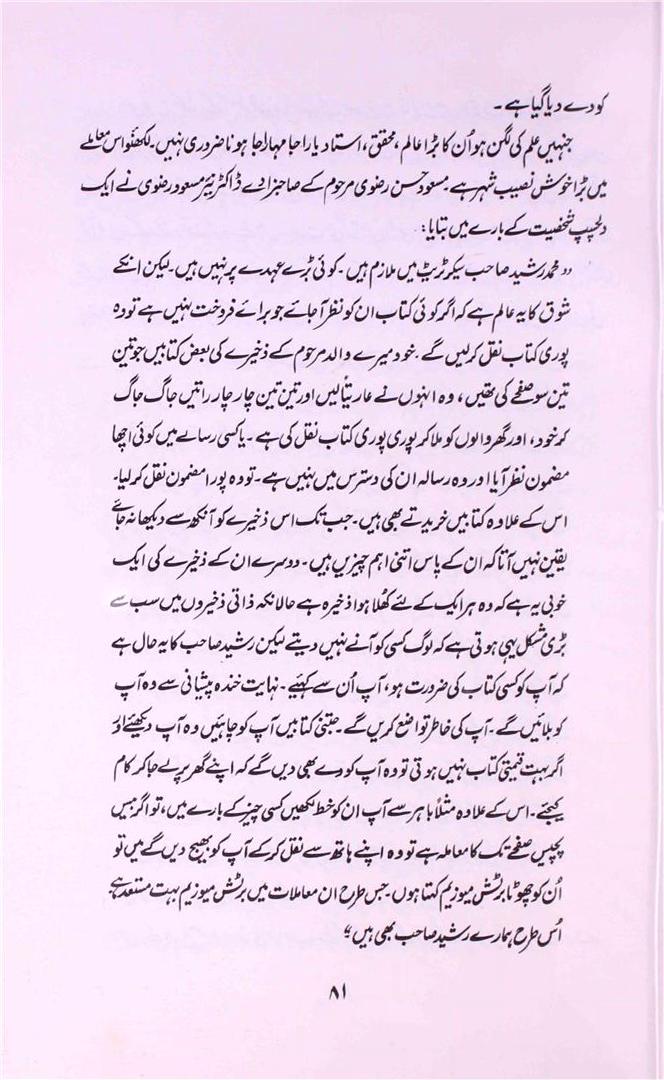 کو دے دیا گیا ہے ۔
جنہیں علم کی لگن ہو اُن کا بڑا عالم، محقق، استاد یا راجا مہاراجا ہونا ضروری نہیں۔ لکھنؤ اس معاملے
میں بڑا خوش نصیب شہر ہے۔ مسعود حسن رضوی مرحوم کے صاحبزادے ڈاکٹر نیّر مسعود رضوی نے ایک
دلچسپ شخصیت کے بارے میں بتایا:
”محمد رشید صاحب سیکرٹریٹ میں ملازم ہیں۔ کوئی بڑے عہدے پر نہیں ہیں۔ لیکن انکے
شوق کا یہ عالم ہے کہ اگر کوئی کتاب ان کو نظر آ جائے جو برائے فروخت نہیں ہے تو وہ
پوری کتاب نقل کرلیں گے۔ خود میرے والد مرحوم کے ذخیرے کی بعض کتابیں جو تین
تین سو صفحے کی تھیں، وہ انہوں نے عاریتاً لیں اور تین تین چار چار راتیں جاگ جاگ
کر خود، اور گھر والوں کو ملا کر پوری پوری کتاب نقل کی ہے۔ یا کسی رسالے میں کوئی اچھا
مضمون نظر آیا اور وہ رسالہ ان کی دسترس میں نہیں ہے۔ تو وہ پورا مضمون نقل کر لیا۔
اس کے علاوہ کتابیں خریدتے بھی ہیں۔ جب تک اس ذخیرے کو آنکھ سے دیکھا نہ جائے
یقین نہیں آتا کہ ان کے پاس اتنی اہم چیزیں ہیں۔ دوسرے ان کے ذخیرے کی ایک
خوبی یہ ہے کہ وہ ہر ایک کے لئے کُھلا ہوا ذخیرہ ہے حالانکہ ذاتی ذخیروں میں سب سے
بڑی مشکل یہی ہوتی ہے کہ لوگ کسی کو آنے نہیں دیتے لیکن رشید صاحب کا یہ حال ہے
کہ آپ کو کسی کتاب کی ضرورت ہو، آپ اُن سے کہئیے۔ نہایت خندہ پیشانی سے وہ آپ
کو بلائیں گے۔ آپ کی خاطر تواضع کریں گے۔ جتنی کتابیں آپ کو چاہئیں وہ آپ دیکھئے اور
اگر بہت قیمتی کتاب نہیں ہوتی تو وہ آپ کو دے بھی دیں گے کہ اپنے گھر پر لے جا کر کام
کیجئے۔ اس کے علاوہ مثلاً باہر سے آپ ان کو خط لکھیں کسی چیز کے بارے میں، تو اگر بیس
پچیس صفحے تک کا معاملہ ہے تو وہ اپنے ہاتھ سے نقل کر کے آپ کو بھیج دیں گے میں تو
اُن کو چھوٹا برٹش میوزیم کہتا ہوں۔ جس طرح ان معاملات میں برٹش میوزیم بہت مستعد ہے
اُس طرح ہمارے رشید صاحب بھی ہیں“
۸۱